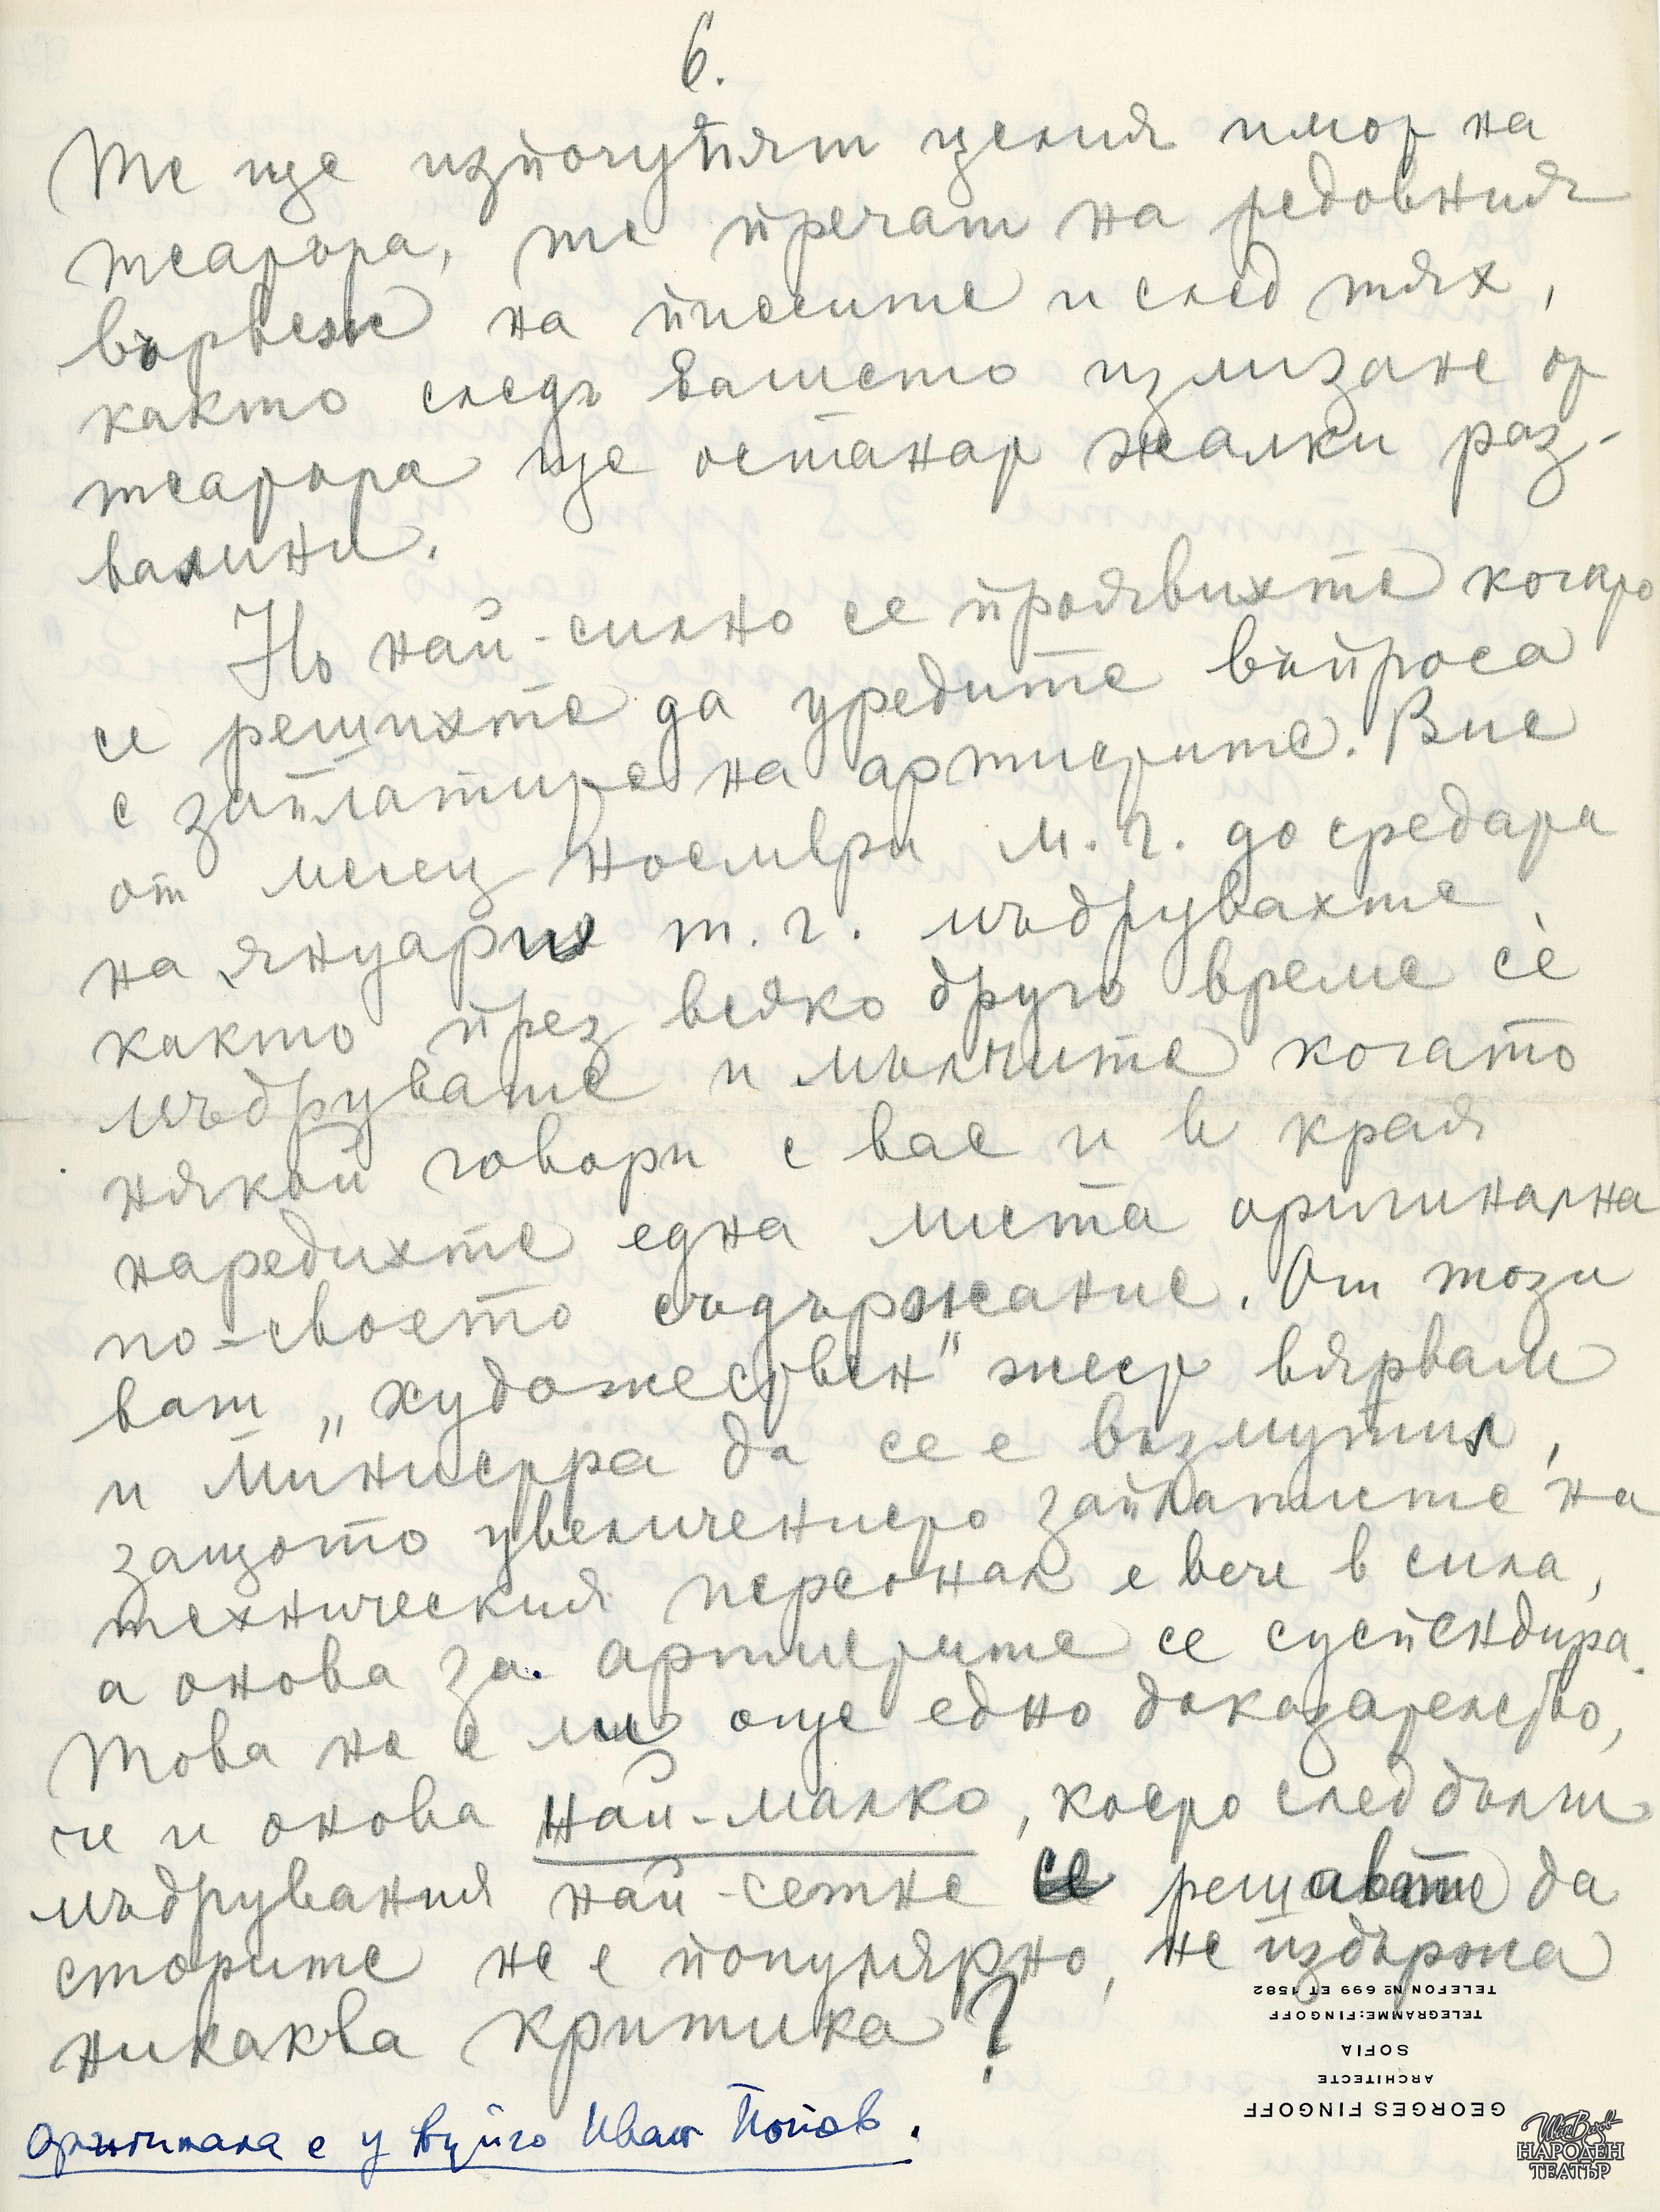 6.
Те ще изпочупят ценния имот на
театъра, те пречат на редовния
вървеж на пиесите и след тях,
както следъ Вашето излизане от
театъра ще останат жалки раз-
валини.
Но най-силно се проявихте когато
се решихте да уредите въпроса
с заплатите на артистите. Вие
от месец Ноември м. г. до средата
на януарий т. г. мъдрувахте
както през всяко друго време сѐ
мъдрувате и мълчите когато
някой говори с вас и в края
наредихте една листа оригинална
по-своето съдържание. От този
ваш „художествен" жест вярвам
и Министра да се е възмутил,
защото увеличението заплатите на
техническия персонал е вече в сила,
а онова за артистите се суспендира.
Това не е ли още едно доказателство,
че и онова най-малко, което след дълги
мъдрувания най-сетне се решавате да
сторите не е популярно, не издържа
никаква критика?
TELEFON № 699 ET 1582
TELEGRAMME: FINGOFF
SOFIA
ARCHITECTE
GEORGES FINGOFF
Оригинала е у вуйчо Иван Попов.
Иван Вазов
НАРОДЕН
ТЕАТЪР